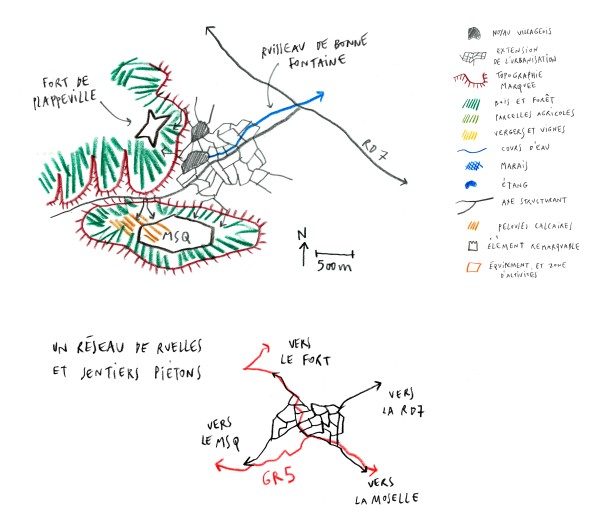 RUISSEAU DE BONNE
FONTAINE
FORT DE
PLAPPEVILLE
RD7
MSQ
N
500m
NOYAU VILLAGEOIS
EXTENSION
DE L'URBANISATION
TOPOGRAPHIE
MARQUÉE
BOIS ET FORÊT
PARCELLES AGRICOLES
VERGERS ET VIGNES
COURS D'EAU
MARAIS
ÉTANG
AXE STRUCTURANT
PELOUSES CALCAIRES
ÉLÉMENT REMARQUABLE
ÉQUIPEMENT ET ZONE
D'ACTIVITÉS
UN RÉSEAU DE RUELLES
ET SENTIERS PIÉTONS
VERS
LE FORT
VERS
LA RD7
VERS
LE MSQ
GR5
VERS
LA MOSELLE